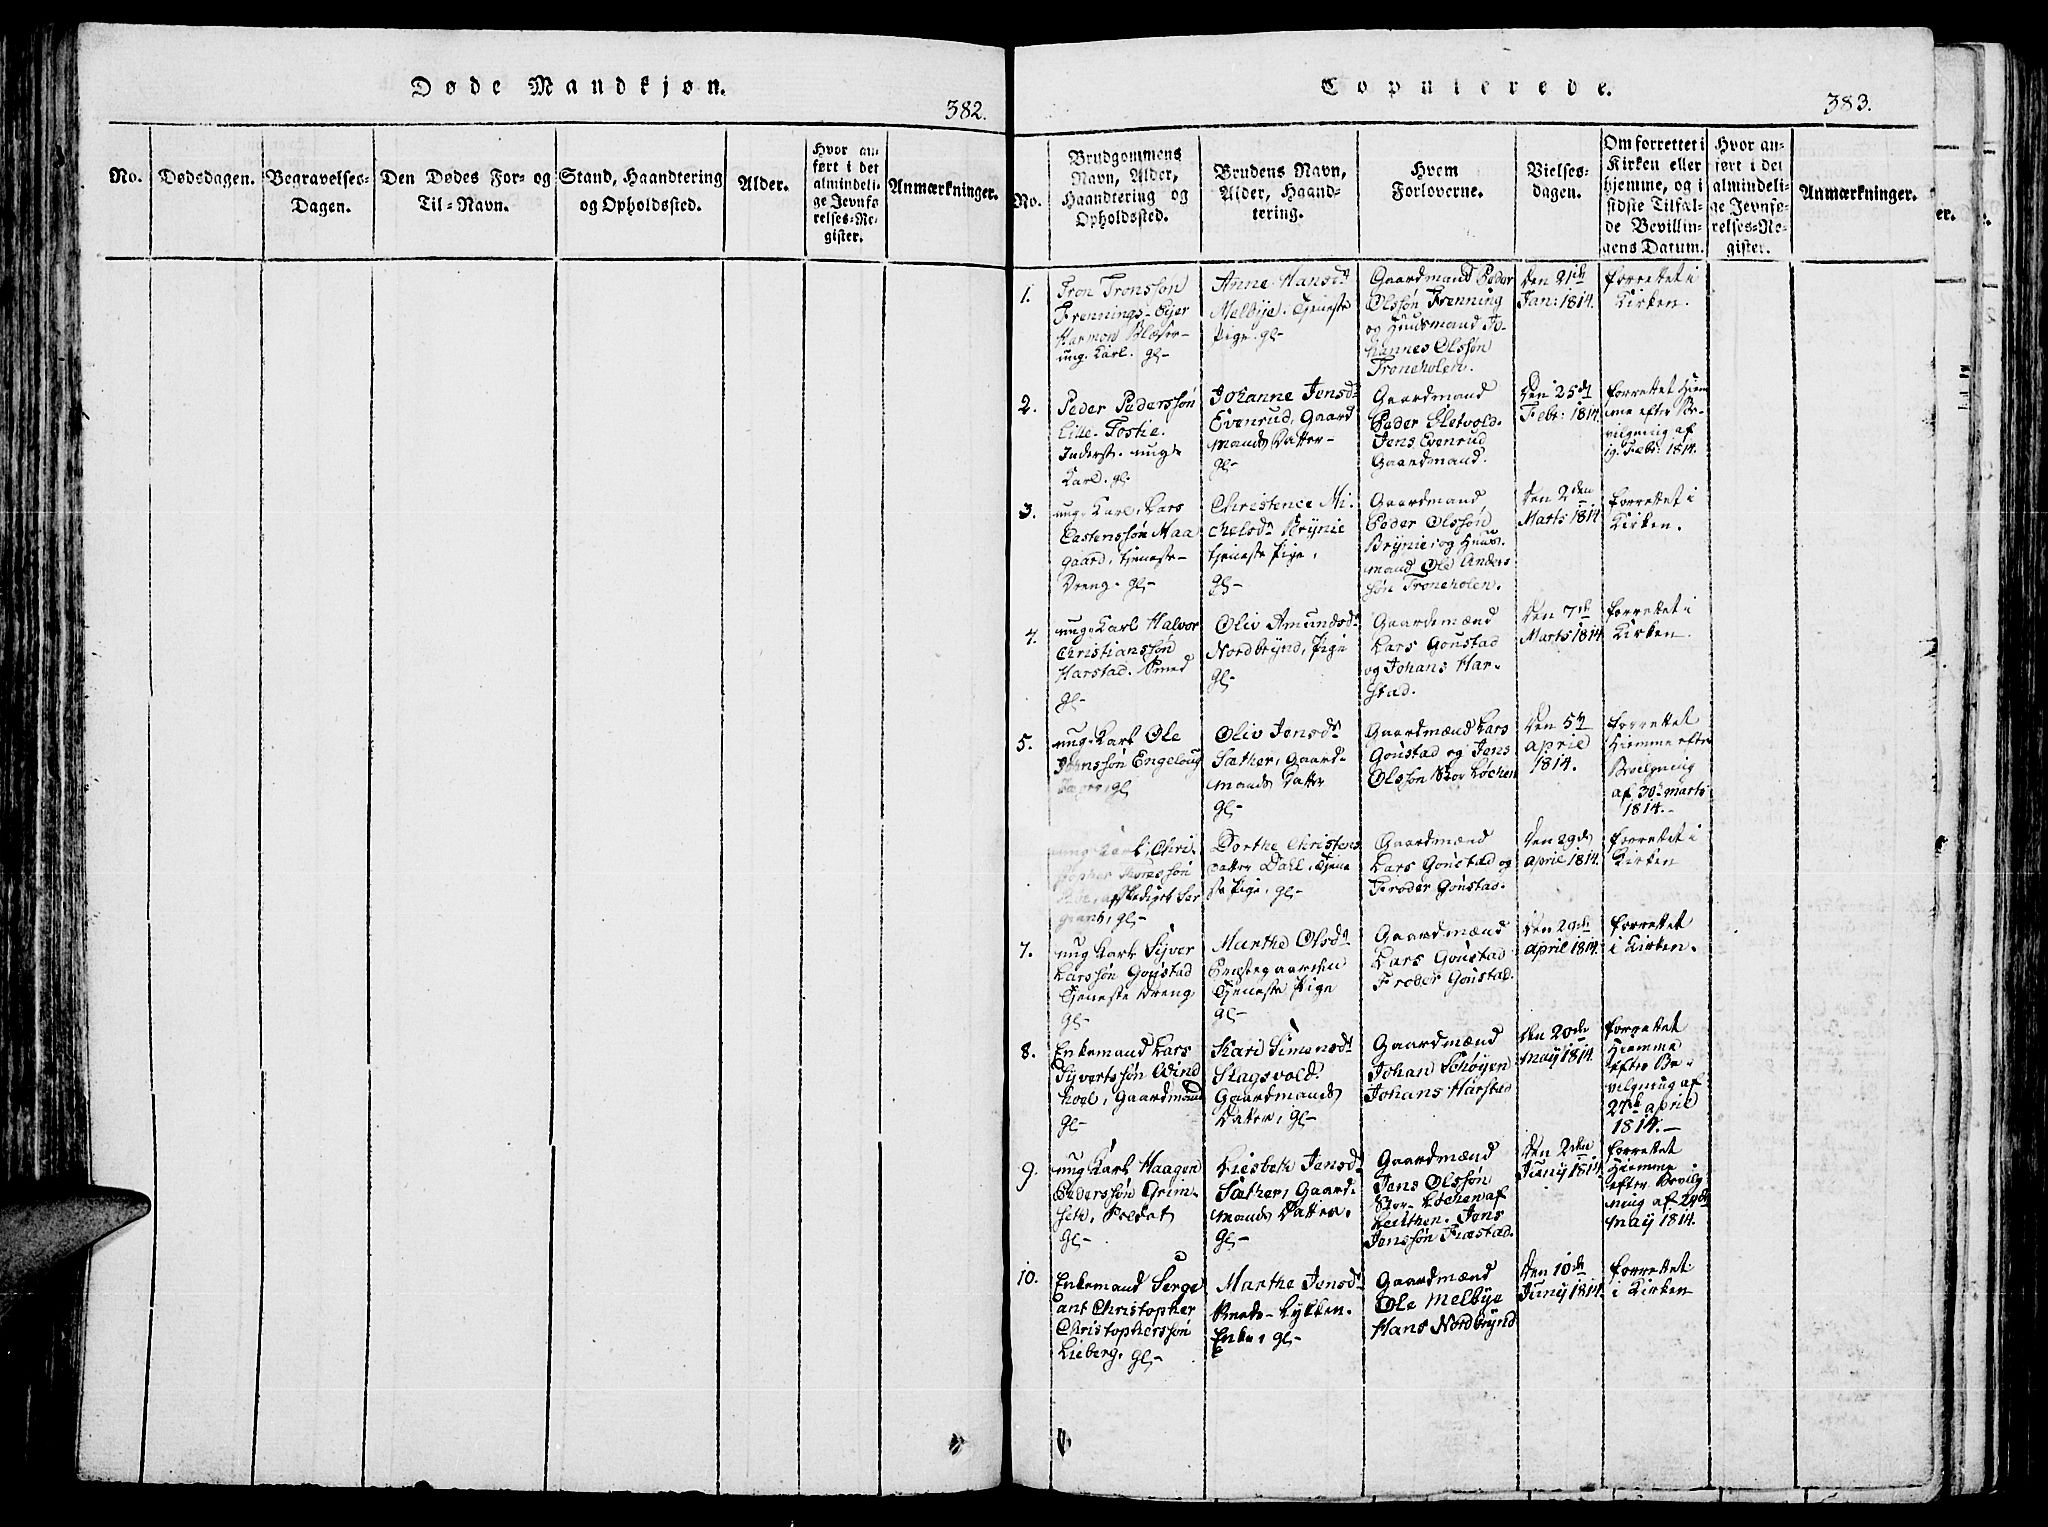 Døde Mandkjøn.
382.
No.
Dødsdagen.
Begravelses-
Dagen.
Den Dødes For- og
Til-Navn.
Stand, Haandtering
og Opholdssted.
Alder.
Hvor an-
ført i det
almindeli-
ge Jevnfø-
relses-Re-
gister.
Anmærkninger.
Copulerede.
383.
No.
Brudgommens
Navn, Alder,
Haandtering og
Opholdssted.
Brudens Navn,
Alder, Haand-
tering.
Hvem
Forloverne.
Vielses-
dagen.
Om forrettet i
Kirken eller
hjemme, og i
sidste Tilfæl-
de Bevillin-
gens Datum.
Hvor an-
ført i det
almindeli-
ge Jevnfø-
relses-Re-
gister.
Anmærkninger.
1.
Tron Tronssøn
Frennings-Ejer
ung. Karl. gl-
Anne Hansd
Melbye. Tjeneste
Pige. gl-
Gaardmand Peder
Olssøn Frenning
og Huusmand Jo-
hannes Olssøn
Troneholen.
den 21
Jan: 1814.
forrettet i
Kirken.
2.
Peder Pederssøn
Lille-Tostie.
Inderst. ung
Karl. gl.
Johanne Jensd
Evenrud, Gaard
mands Datter-
gl-
Gaardmand
Peder Sletvold.
Jens Evenrud
Gaardmand.
den 25
Febr: 1814.
forrettet Hiem
me efter Be-
vilgning af
19. Febr: 1814.
3.
ung. Karl. Lars
Castenssøn Maa-
gaard, tjeneste-
Dreng. gl-
Christence Mi-
chelsd Brynie
tjeneste Pige.
gl-
Gaardmand
Peder Olssøn
Brynie, og Huus-
mand Ole Anders
søn Troneholen.
den 2den
Marts 1814
forrettet i
Kirken.
4.
ung. Karl Halvor
Christianssøn
Harstad. Smed
gl-
Oliv Amundsd
Nordbrynd, Pige
gl-
Gaardmænd
Lars Gonstad
og Johans Har-
stad.
den 7
Marts 1814
forrettet i
Kirken.
5.
ung. Karl Ole
Johnssøn Engeloug
gl
Oliv Jensd
Sæther, Gaard-
mands Datter
gl-
Gaardmænd Lars
Gonstad og Jens
Olssøn Stor Løchen
den 5
april
1814.
forrettet
Hiemme efter
Bevilgning
af 30 marts
1814.-
ung Karl, Chri-
afskediget Ser
geant, gl-
Dorthe Christens
datter Dahl, Tjene
ste Pige, gl-
Gaardmænd
Lars Gonstad og
Frøder Gonstad.
den 29de
april 1814.
forrettet i
Kirken
7.
ung Karl Syver
Larssøn Gonstad
Tjeneste Dreng
gl-
Marthe Olsd
Prestegaarden
Tjeneste Pige
gl-
Gaardmænd
Lars Gonstad
Frøder Gonstad.
den 29de
april 1814.
forrettet
i Kirken.
8.
Enkemand Lars
Syvertssøn Wind
hoel, Gaardmand
gl-
Kari Simensd
Skagsvold.
Gaardmands
Datter, gl-
Gaardmænd
Johan Schøyen
Johans Harstad
den 20de
may 1814.
forrettet
Hiemme
efter Be-
vilgning af
27 april
1814.-
9.
ung Karl Haagen
Pederssøn Grim-
seth, Soldat
gl-
Liesbeth Jensd
Sæther, Gaard-
mands Datter.
gl-
Gaardmænd
Jens Olssøn
Stor-Løchen af
Leuthen. Jens
Jenssøn Fiæstad.
den 2den
Juny 1814.
forrettet
Hiemme
efter Bevilg
ning af 24de
may 1814.
10.
Enkemand Serge
ant Christopher
Christopherssøn
Lieberg. gl-
Marthe Jensd
Lykken.
Enke, gl-
Gaardmænd
Ole Melbye
Hans Nordbrynd
den 10de
Juny 1814.
forrettet
i Kirken